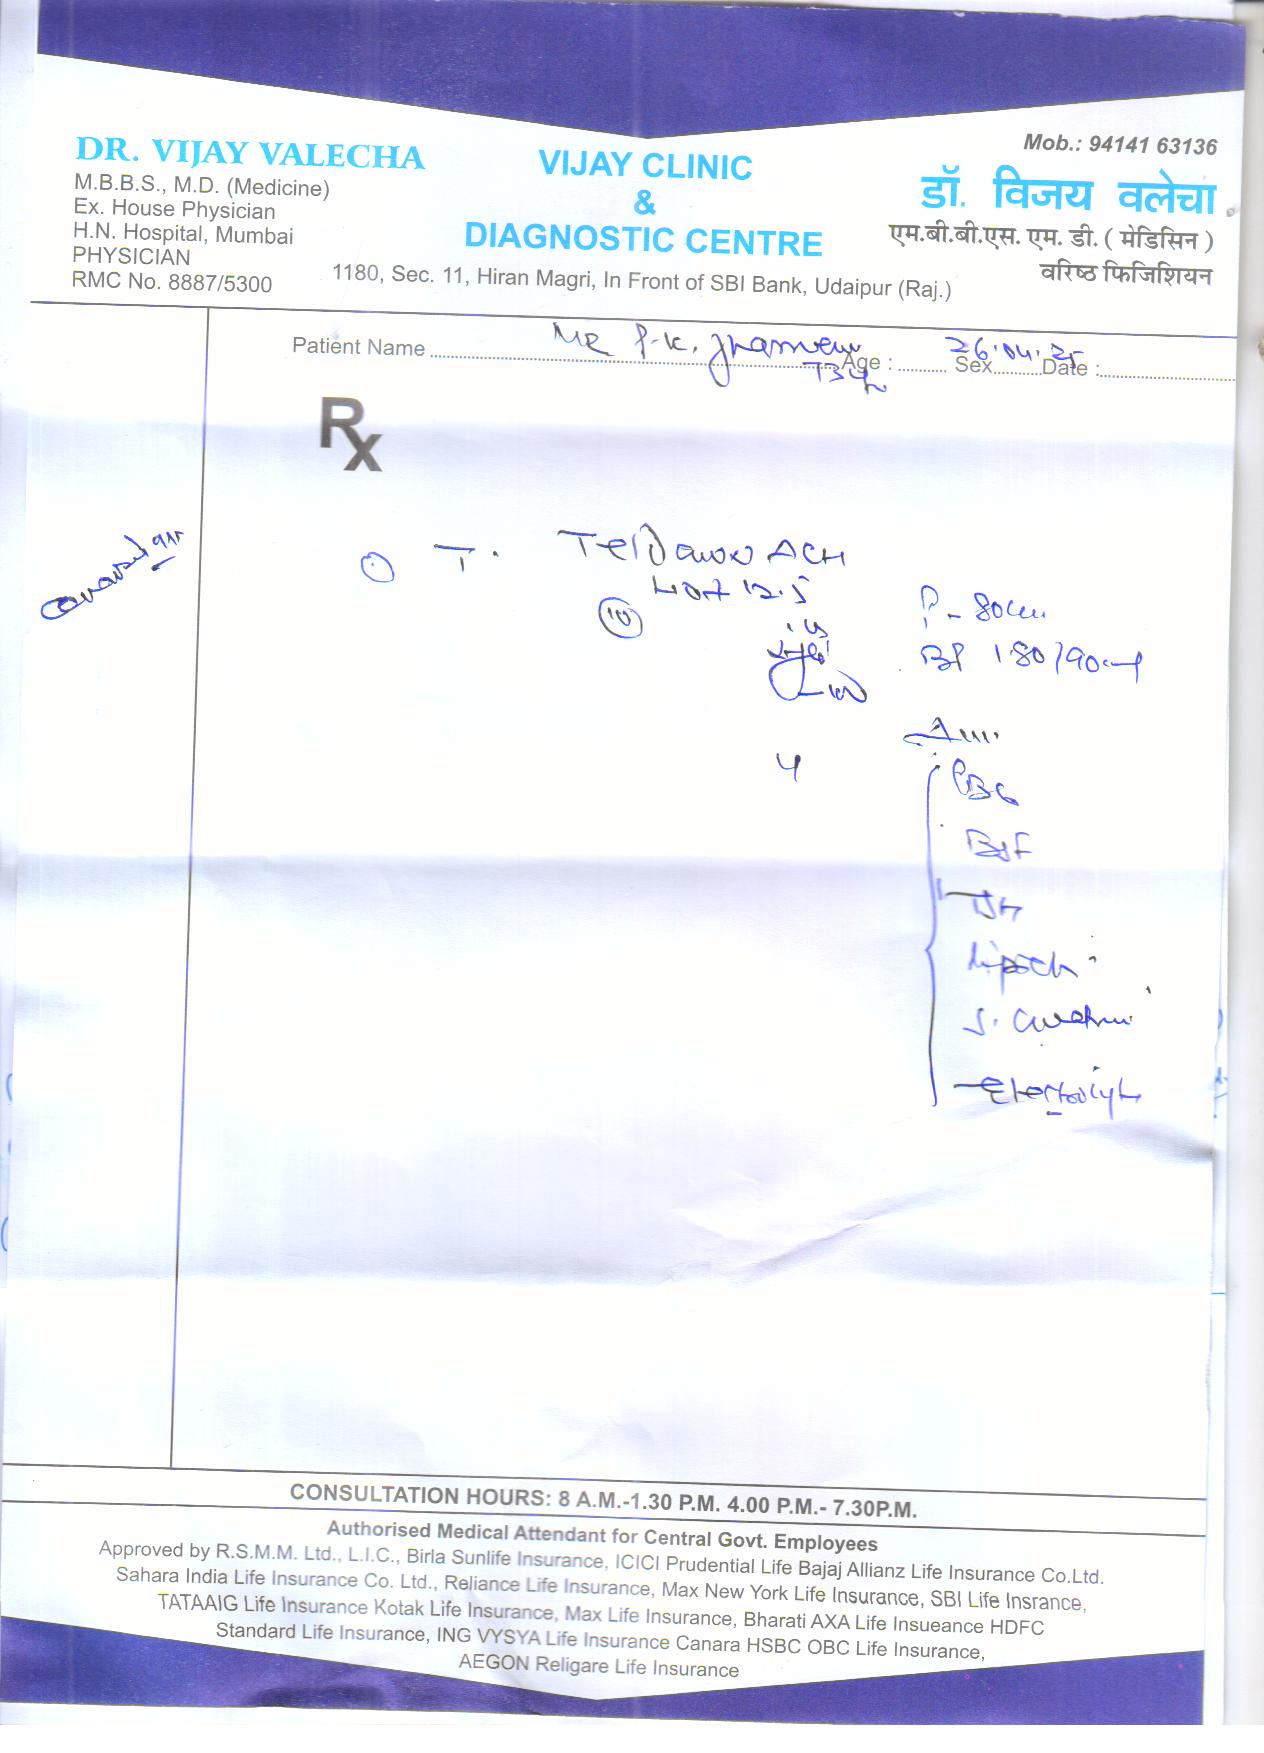 Mob.: 94141 63136
DR. VIJAY VALECHA
M.B.B.S., M.D. (Medicine)
Ex. House Physician
H.N. Hospital, Mumbai
PHYSICIAN
RMC No. 8887/5300
VIJAY CLINIC
&
DIAGNOSTIC CENTRE
1180, Sec. 11, Hiran Magri, In Front of SBI Bank, Udaipur (Raj.)
डॉ. विजय वलेचा
एम.बी.बी.एस. एम. डी. ( मेडिसिन )
वरिष्ठ फिजिशियन
Patient Name MR P.K. Age : Sex Date :
73y 26.04.25
Rx
T. ACH
12.5
10
P - 80
BP 180/90
4
CBC
TSH
S.
CONSULTATION HOURS: 8 A.M.-1.30 P.M. 4.00 P.M.- 7.30P.M.
Authorised Medical Attendant for Central Govt. Employees
Approved by R.S.M.M. Ltd., L.I.C., Birla Sunlife Insurance, ICICI Prudential Life Bajaj Allianz Life Insurance Co.Ltd.
Sahara India Life Insurance Co. Ltd., Reliance Life Insurance, Max New York Life Insurance, SBI Life Insrance,
TATAAIG Life Insurance Kotak Life Insurance, Max Life Insurance, Bharati AXA Life Insueance HDFC
Standard Life Insurance, ING VYSYA Life Insurance Canara HSBC OBC Life Insurance,
AEGON Religare Life Insurance